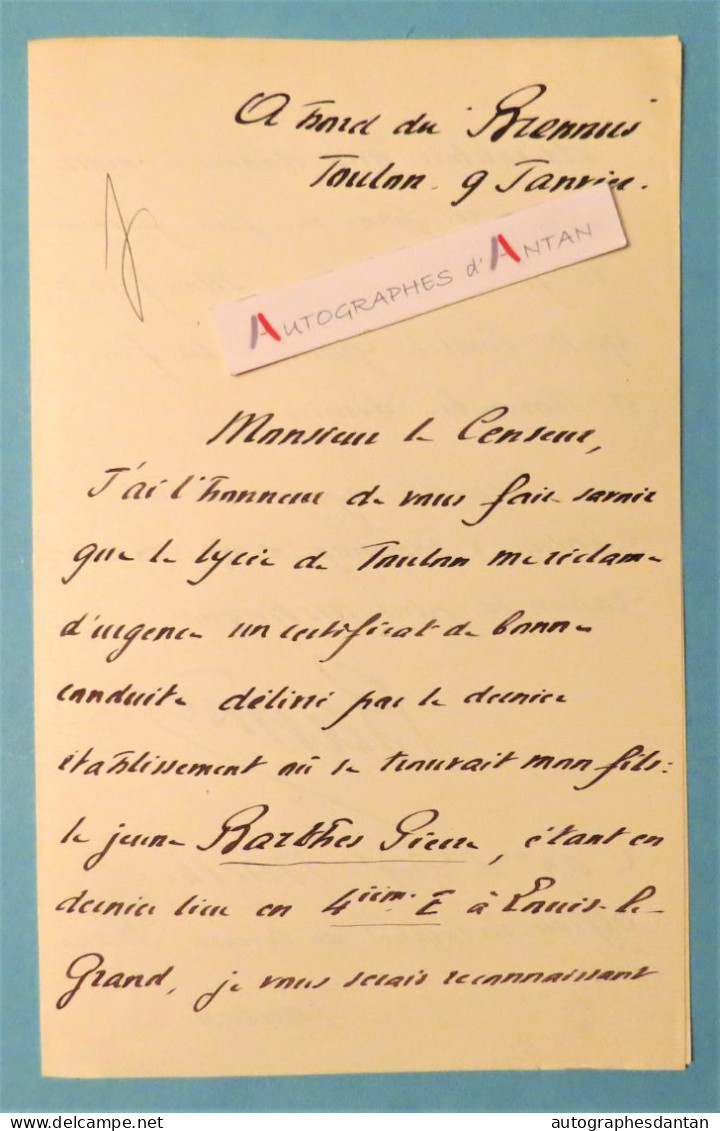 A bord du "Brennus"
Toulon. 9 Janvier.
AUTOGRAPHES d'ANTAN
Monsieur le Censeur,
J'ai l'honneur de vous faire savoir
que le lycée de Toulon me réclame
d'urgence un certificat de bonne
conduite délivré par le dernier
établissement où se trouvait mon fils:
le jeune Barthes Pierre, étant en
dernier lieu en 4ième E à Louis-le-
Grand, je vous serais reconnaissant
delcampe.net
autographesdantan